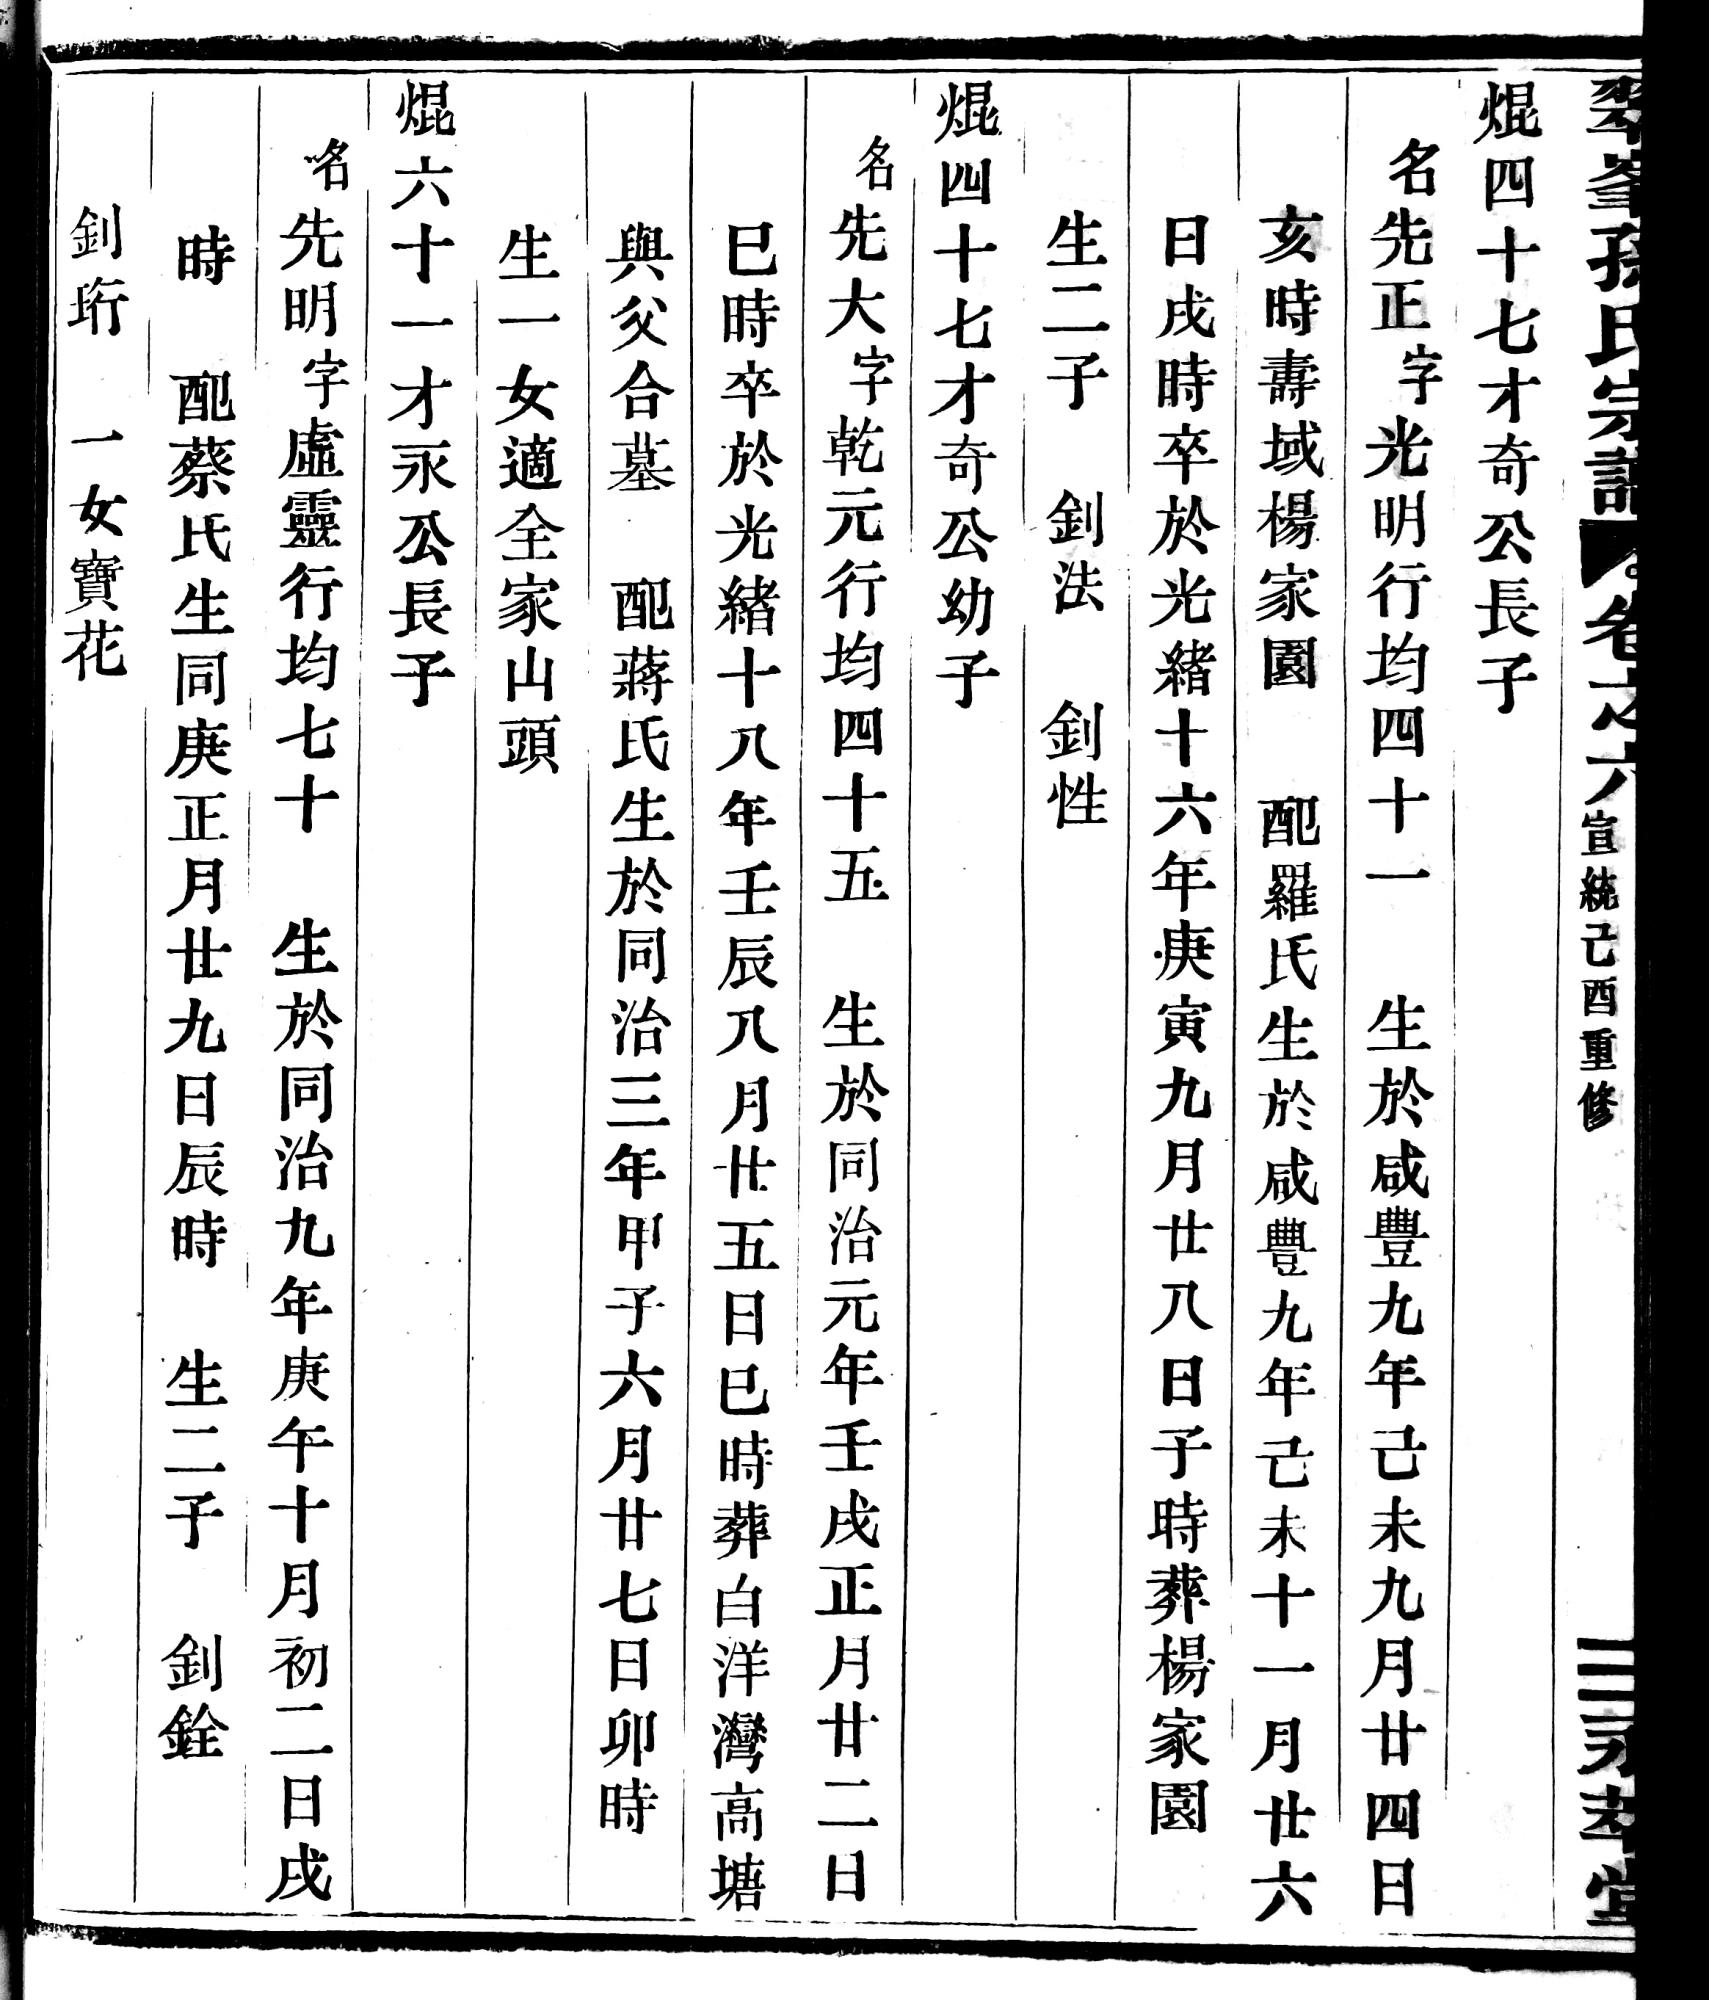 翠峯孫氏宗譜 卷之六 宣統己酉重修 永萃堂
焜四十七才奇公長子
名先正字光明行均四十一 生於咸豐九年己未九月廿四日
亥時壽域楊家園 配羅氏生於咸豐九年己未十一月廿六
日戌時卒於光緒十六年庚寅九月廿八日子時葬楊家園
生二子 釗法 釗性
焜四十七才奇公幼子
名先大字乾元行均四十五 生於同治元年壬戌正月廿二日
巳時卒於光緒十八年壬辰八月廿五日巳時葬白洋灣高塘
與父合墓 配蔣氏生於同治三年甲子六月廿七日卯時
生一女適全家山頭
焜六十一才永公長子
名先明字虛靈行均七十 生於同治九年庚午十月初二日戌
時 配蔡氏生同庚正月廿九日辰時 生二子 釗銓
釗珩 一女寶花